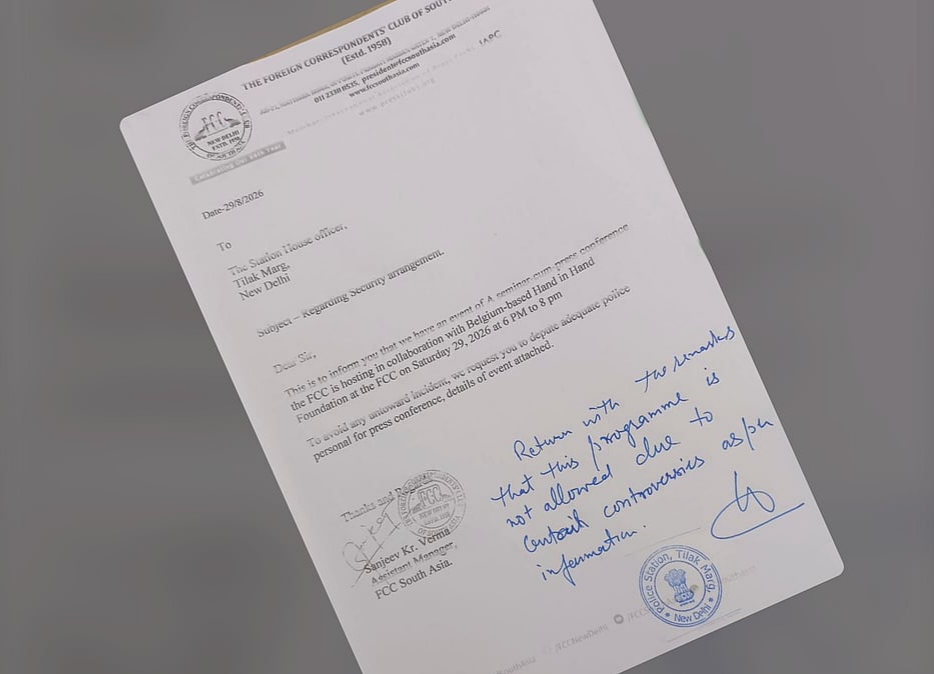 THE FOREIGN CORRESPONDENTS' CLUB OF SOUTH
(Estd. 1958)
011 2338 8535, president@fccsouthasia.com
www.fccsouthasia.com
IAPC
www.pressclubs.org
FCC
NEW DELHI
ESTD. 1958
Celebrating Our 68th Year
Date-29/8/2026
To
The Station House officer,
Tilak Marg,
New Delhi
Subject – Regarding Security arrangement.
Dear Sir,
This is to inform you that we have an event of A seminar-cum-press conference
the FCC is hosting in collaboration with Belgium-based Hand in Hand
Foundation at the FCC on Saturday 29, 2026 at 6 PM to 8 pm
To avoid any untoward incident, we request you to depute adequate police
personal for press conference, details of event attached.
Thanks and Regards
Sanjeev Kr. Verma
Assistant Manager,
FCC South Asia.
Return with the remarks
that this programme is
not allowed due to
controversies as per
information.
Police Station, Tilak Marg,
New Delhi
/FCCNewDelhi